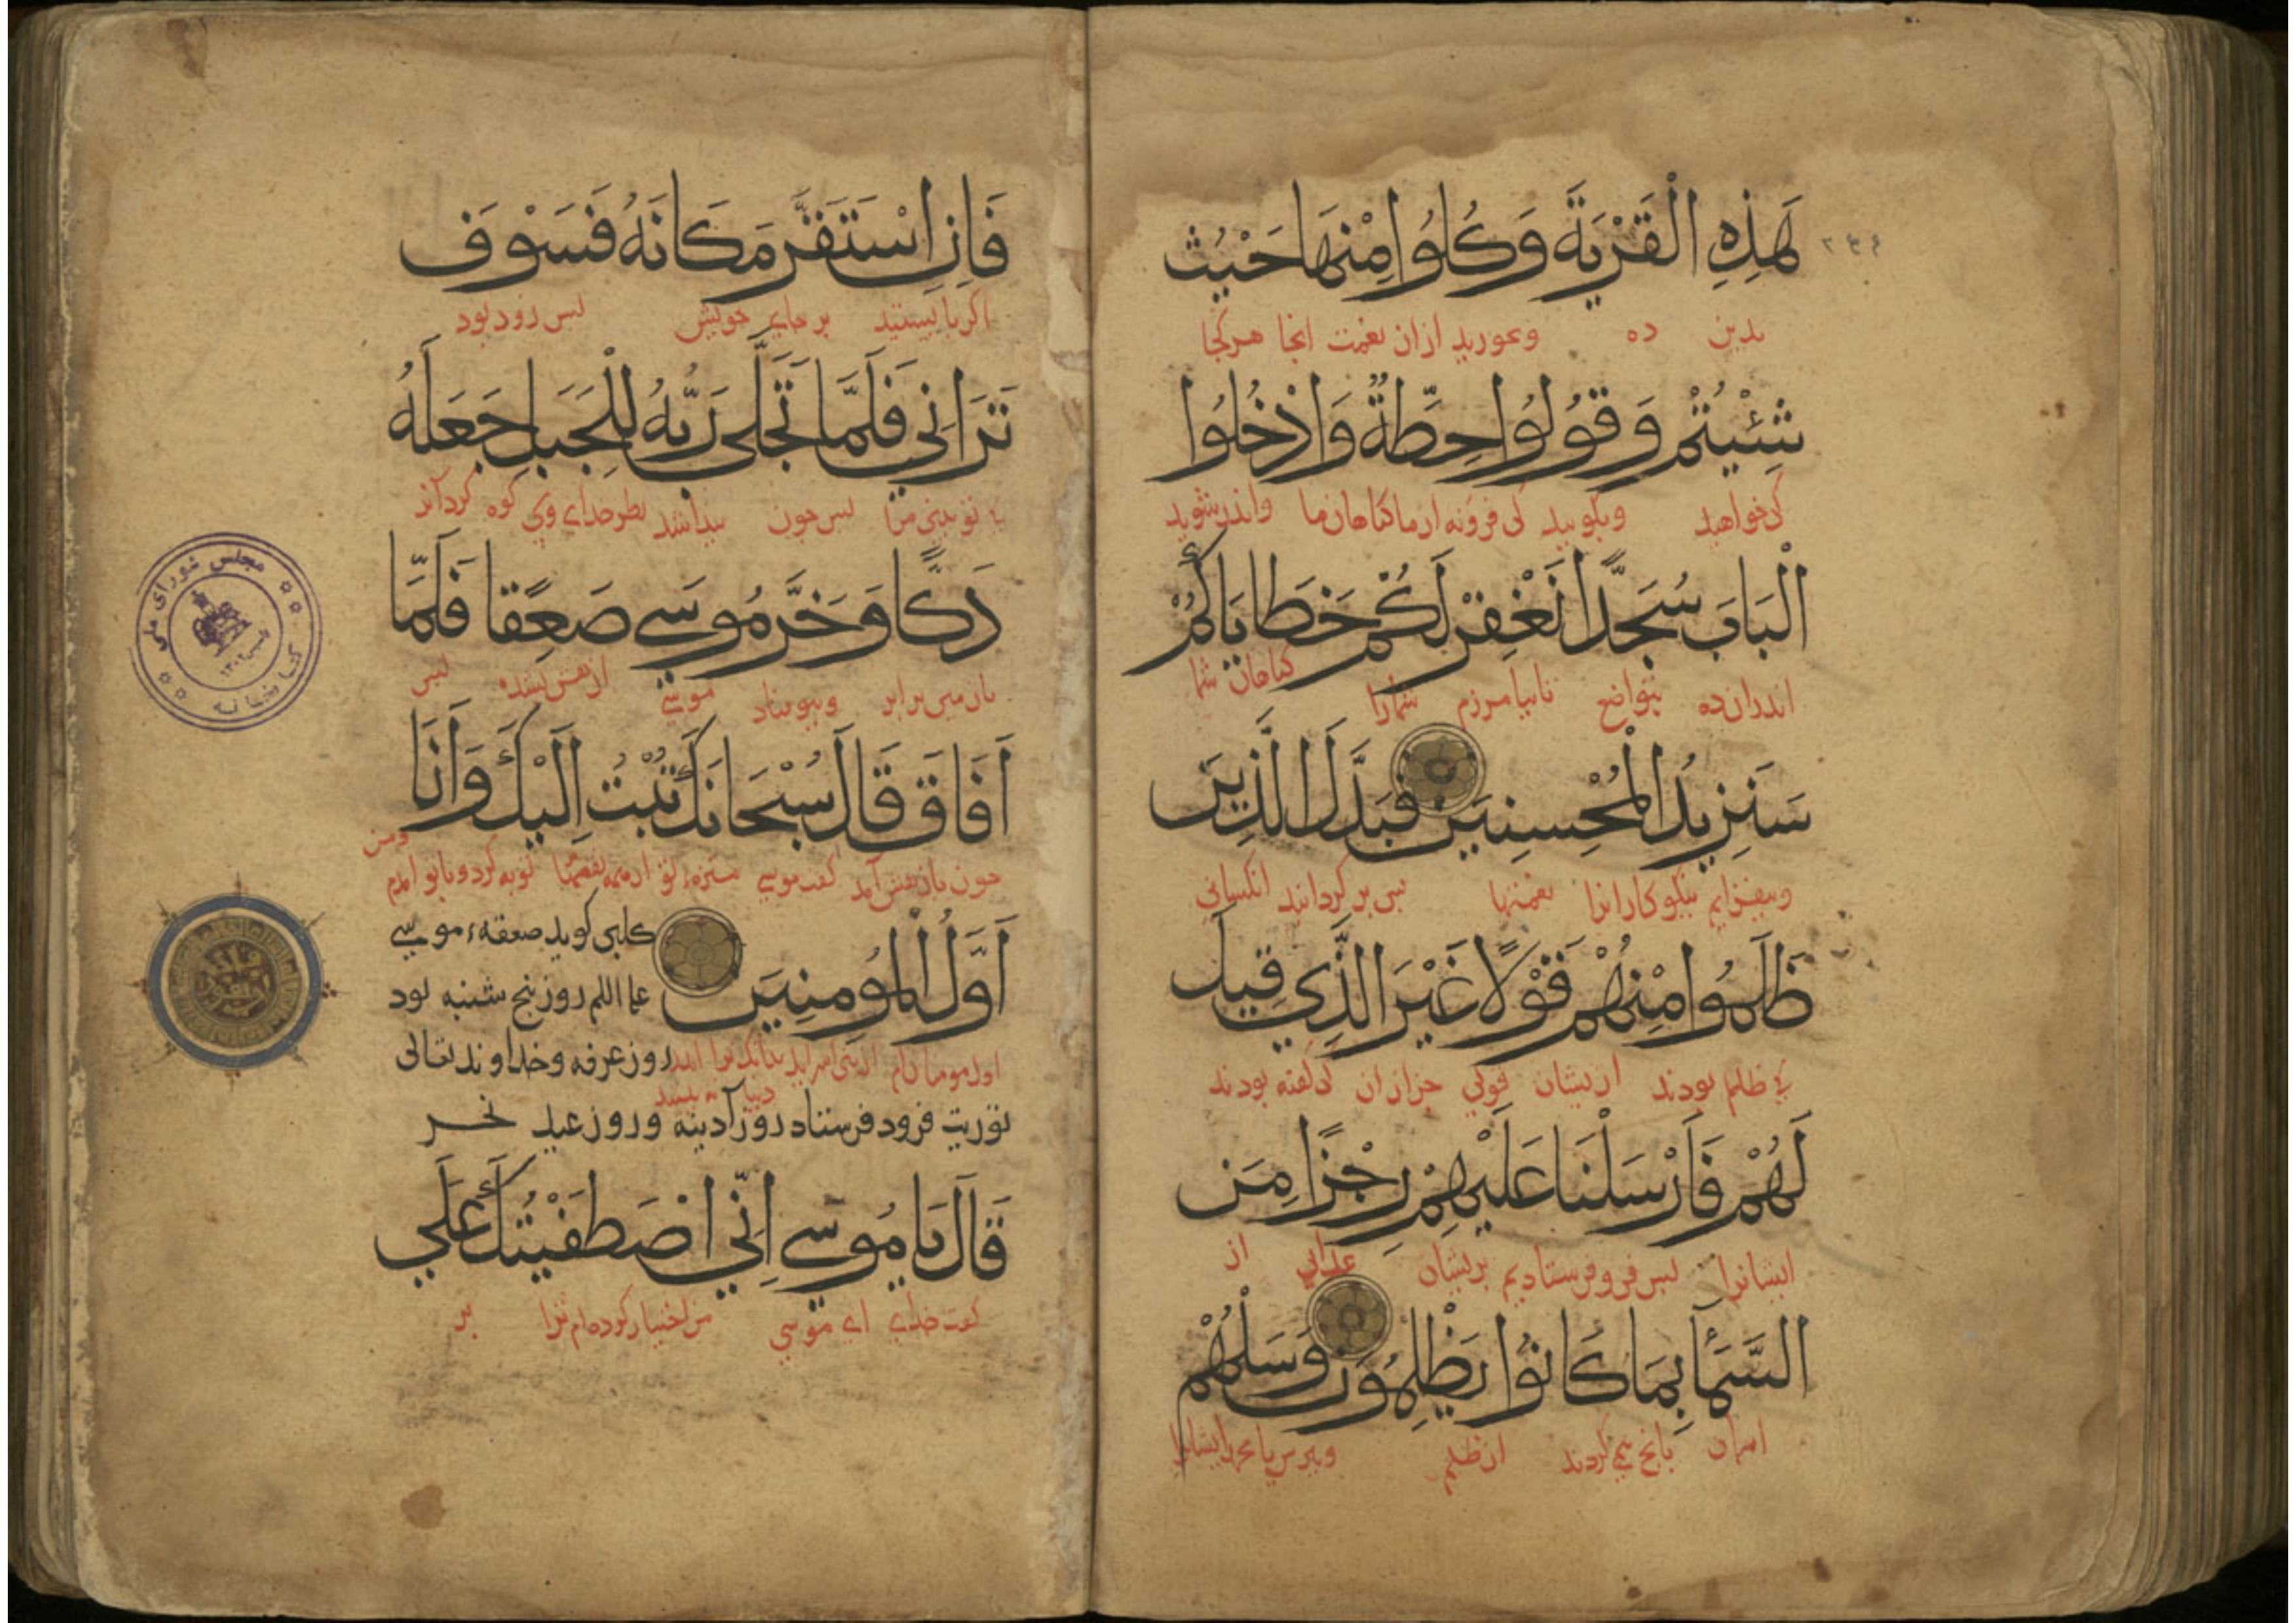 هَذِهِ الْقَرْيَةَ وَكُلُوا مِنْهَا حَيْثُ
بدین ده وبخورید از ان نعمت انجا هر کجا
شِئْتُمْ وَقُولُوا حِطَّةٌ وَادْخُلُوا
کی خواهید وبکویید کی فرونه از ما کناهان ما واندر شوید
الْبَابَ سُجَّدًا نَغْفِرْ لَكُمْ خَطَايَاكُمْ
اندران ده بتواضع تا بیامرزم شما را کناهان شما
سَنَزِيدُ الْمُحْسِنِينَ فَبَدَّلَ الَّذِينَ
وبیفزایم نیکوکارانرا نعمتها بس بر کردانید انکسانی
ظَلَمُوا مِنْهُمْ قَوْلًا غَيْرَ الَّذِي قِيلَ
کی ظلم بودند ازیشان قولی جز از ان کی کفته بودند
لَهُمْ فَأَرْسَلْنَا عَلَيْهِمْ رِجْزًا مِنَ
ایشانرا بس فرو فرستادیم بریشان عذابی از
السَّمَاءِ بِمَا كَانُوا يَظْلِمُونَ وَسْئَلْهُمْ
اسمان بانج می کردند از ظلم وببرس یا محمد ایشانرا
۲۳۴
فَإِنِ اسْتَقَرَّ مَكَانَهُ فَسَوْفَ
اکر بایستید بر جای خویش بس زود بود
تَرَانِي فَلَمَّا تَجَلَّى رَبُّهُ لِلْجَبَلِ جَعَلَهُ
تو بینی مرا بس جون خدای وی کوه کردآند
دَكًّا وَخَرَّ مُوسَى صَعِقًا فَلَمَّا
با زمین برابر وبیوفتاد موسی بس
أَفَاقَ قَالَ سُبْحَانَكَ تُبْتُ إِلَيْكَ وَأَنَا
جون باز هش آمد کفت موسی منزهء تو از همه نقصها توبه کردم وباتو امدم ومن
أَوَّلُ الْمُؤْمِنِينَ
اول مومنانم
کلبی کوید صعقهء موسی
علیه السلم روز بنج شنبه بود
روز عرفه وخداوند تعالی
توریت فرود فرستاد روز آدینه وروز عید نحر
قَالَ يَا مُوسَى إِنِّي اصْطَفَيْتُكَ عَلَى
کفت خدای ای موسی من اختیار کرده ام ترا بر
مجلس شورای ملی
کتابخانه